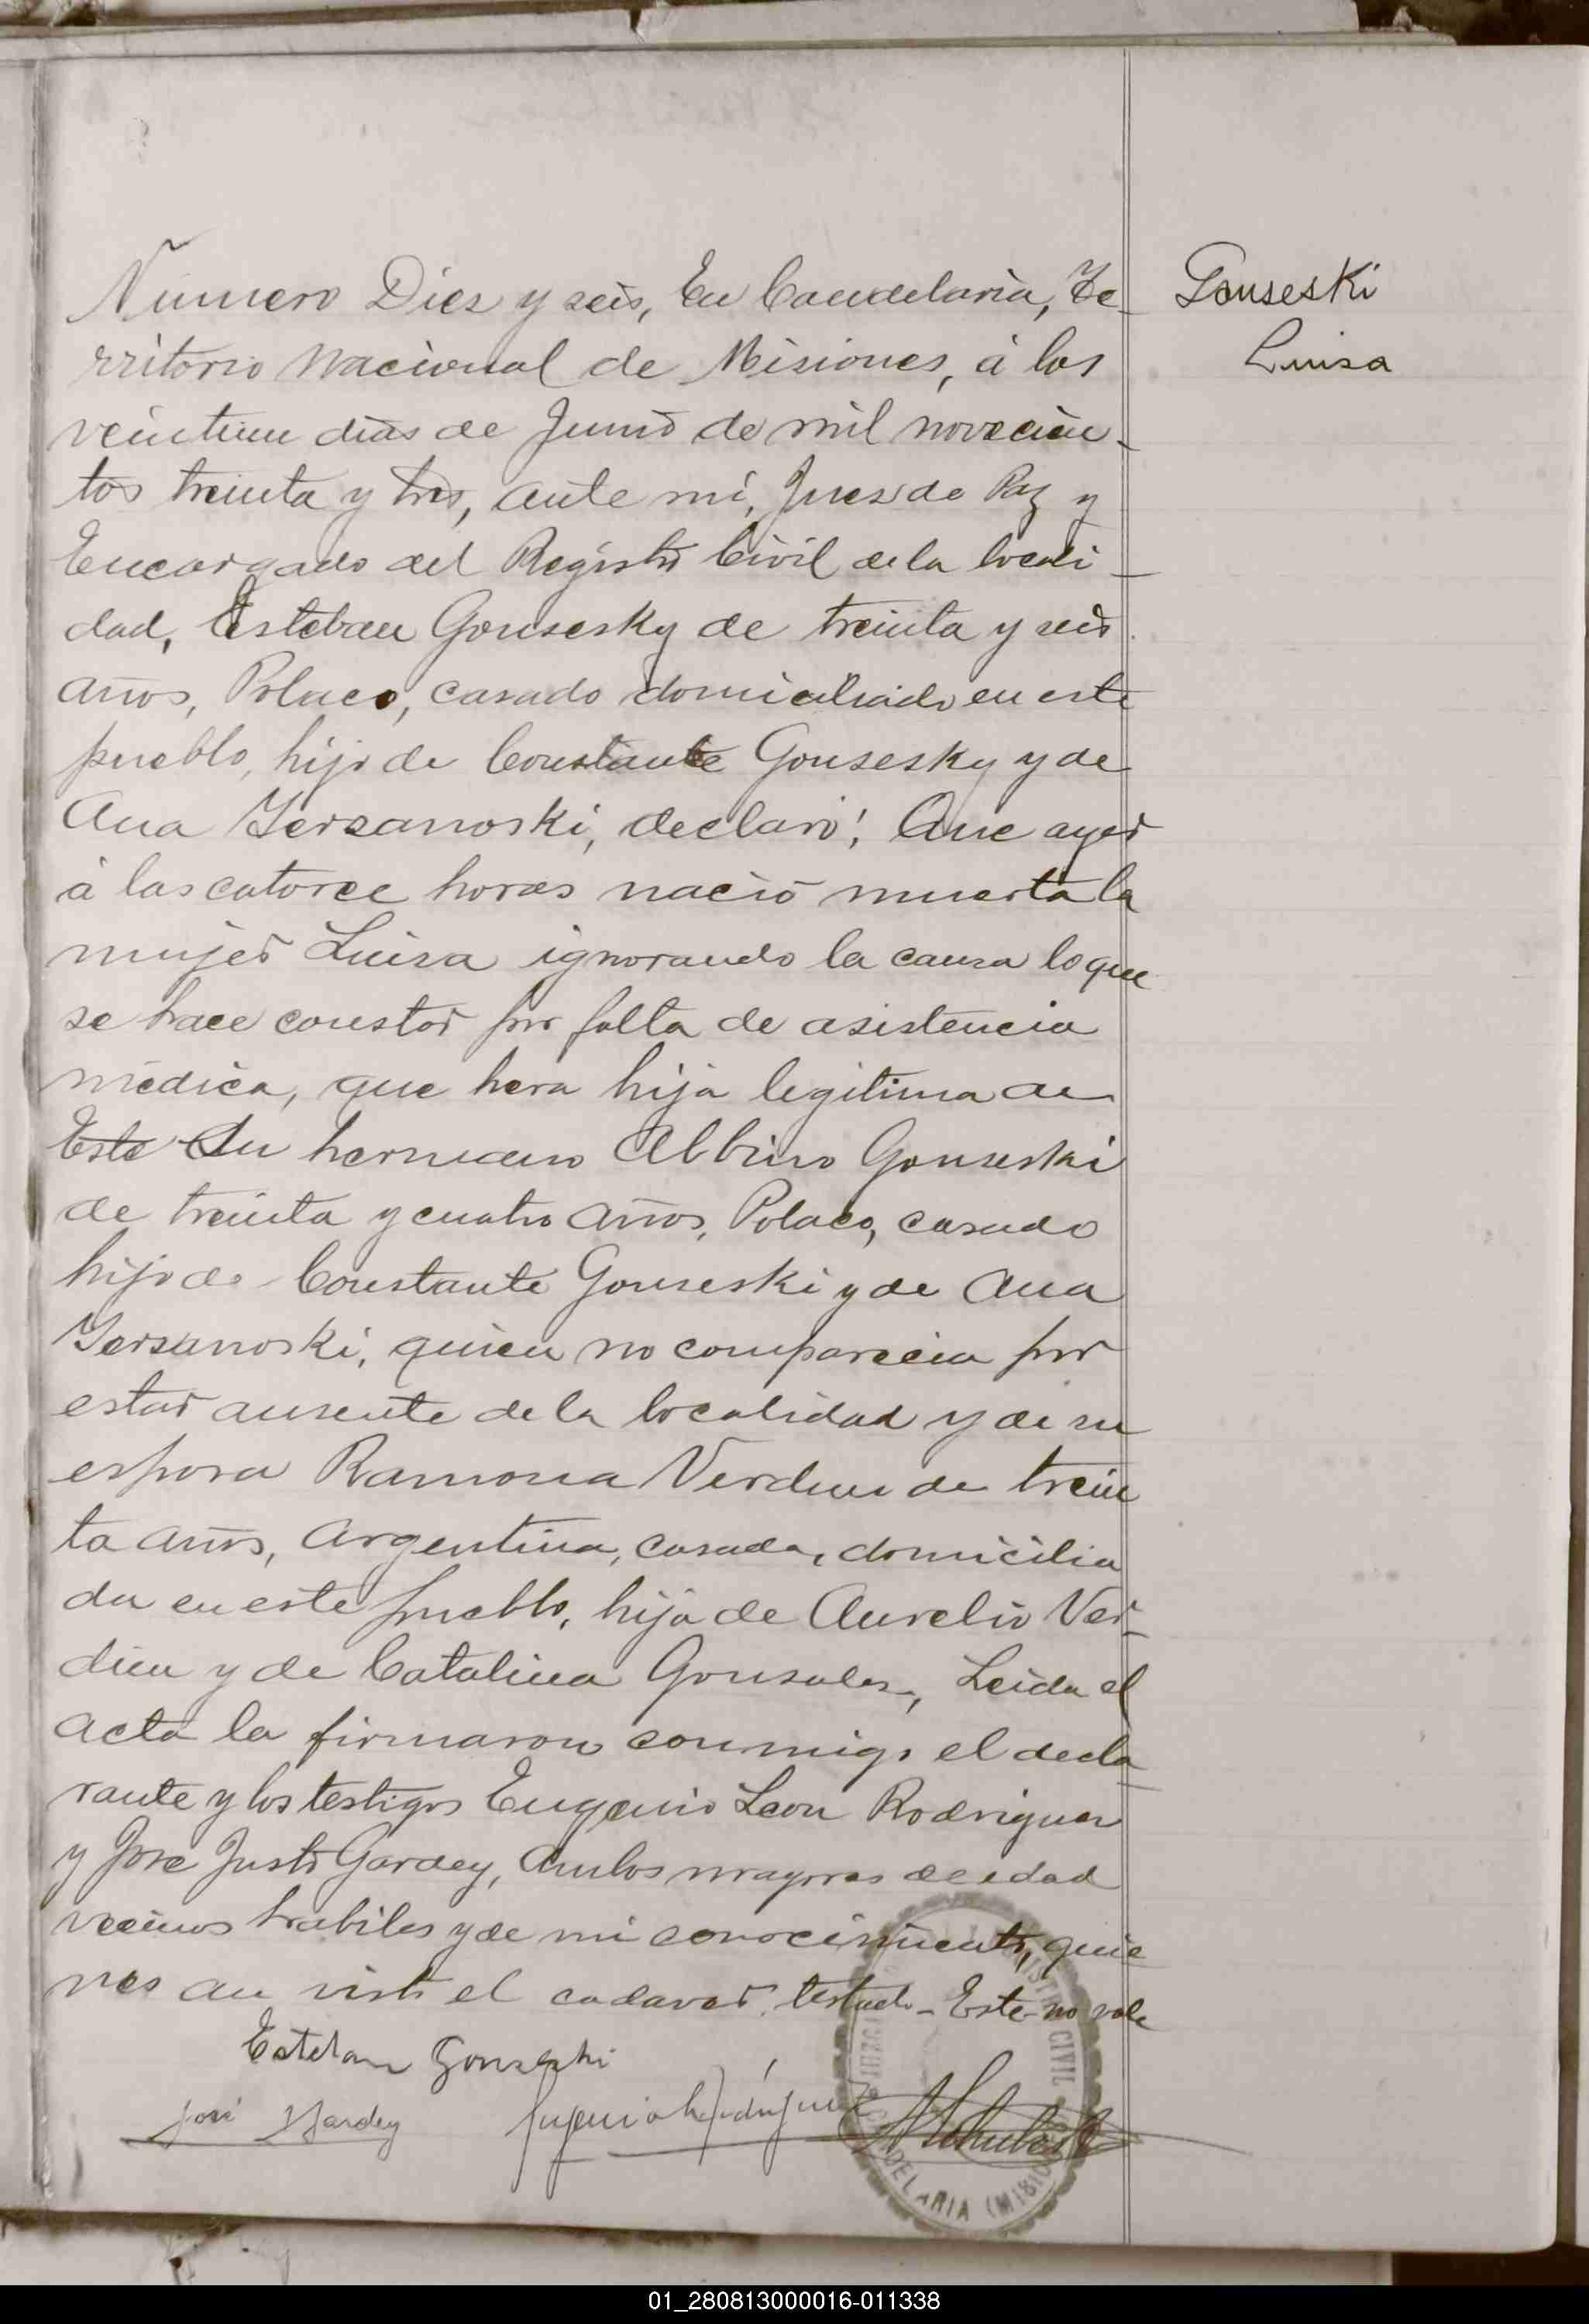 Gonseski
Luisa
Número Diez y seis, En Candelaria, Te-
rritorio Nacional de Misiones, á los
veintiun dias de Junio de mil novecien-
tos treinta y tres, ante mí, Juez de Paz y
Encargado del Registro Civil de la locali-
dad, Esteban Gonsesky de treinta y seis
años, Polaco, casado domiciliado en este
pueblo, hijo de Constante Gonsesky y de
Ana Jersanoski, declaró: Que ayer
á las catorce horas nació muerta la
mujer Luisa ignorando la causa lo que
se hace constar por falta de asistencia
médica, que hera hija legitima de
Este Su hermano Albino Gonseski
de treinta y cuatro años, Polaco, casado
hijo de Constante Gonseski y de Ana
Jersanoski, quien no comparecia por
estar ausente de la localidad y de su
esposa Ramona Verdun de trein
ta años, Argentina, casada, domicilia
da en este pueblo, hija de Aurelio Ver-
dun y de Catalina Gonsales, Leida el
acta la firmaron conmigo el decla-
rante y los testigos Eugenio Leon Rodriguez
y José Justo Gardey, Ambos mayores de edad
vecinos habiles y de mi conocimiento, quie
nes an visto el cadaver. testado - Este - no vale
Esteban Gonseski
José J Gardey Eugenio L. Rodríguez
CIVIL
CANDELARIA (MISIONES)
01_280813000016-011338